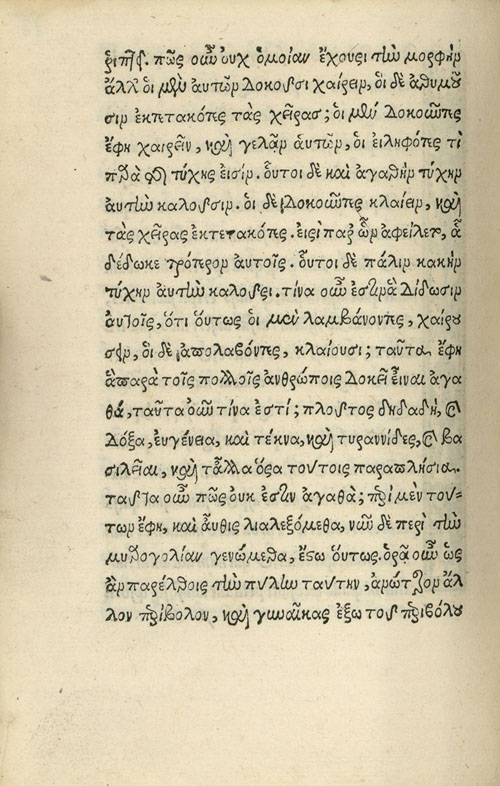 ρίπτῃς. πῶς οὖν οὐχ ὁμοίαν ἔχουσι τὴν μορφὴν
ἀλλ' οἱ μὲν αυτῶν δοκοῦσι χαίρειν, οἱ δὲ ἀθυμοῦ
σιν εκπετακότες τὰς χεῖρας; οἱ μὲν δοκοῦντες
ἔφη χαιρεῖν, καὶ γελᾶν ἀυτῶν, οἱ ειληφότες τὶ
παρὰ τῆς τύχης εισίν. οὗτοι δὲ καὶ αγαθὴν τύχην
αυτὴν καλοῦσιν. οἱ δὲ δοκοῦντες κλαίειν, καὶ
τὰς χεῖρας εκτετακότες. εισὶ παρ' ὧν αφείλετ, ἃ
δέδωκε πρότερον αυτοῖς. οὗτοι δὲ πάλιν κακὴν
τύχην αυτὴν καλοῦσι. τίνα οὖν εστιν ἃ δίδωσιν
αυτοῖς, ότι ούτως οἱ μεν λαμβάνοντες, χαίρου
σιν, οἱ δὲ απολαβόντες, κλαίουσι; ταῦτα ἔφη
ἃ παρὰ τοῖς πολλοῖς ανθρώποις δοκεῖ εἶναι αγα
θά, ταῦτα οὖν τίνα εστί; πλοῦτος δηλαδὴ, καὶ
δόξα, ἐυγένεια, καὶ τέκνα, καὶ τυραννίδες, καὶ βα
σιλεῖαι, καὶ τἆλλα όσα τούτοις παραπλήσια.
ταῦτα οὖν πῶς ουκ εστιν αγαθά; περὶ μὲν τού=
των ἔφη, καὶ αὖθις διαλεξόμεθα, νῦν δὲ περὶ τὴν
μυθογολίαν γενώμεθα, έσω ούτως. ορᾷ οὖν ὡς
ἂν παρέλθοις τὴν πύλην ταύτην, ἀνώτερον ἄλ
λον περίβολον, καὶ γυναῖκας ἔξω τοῦ περιβόλου